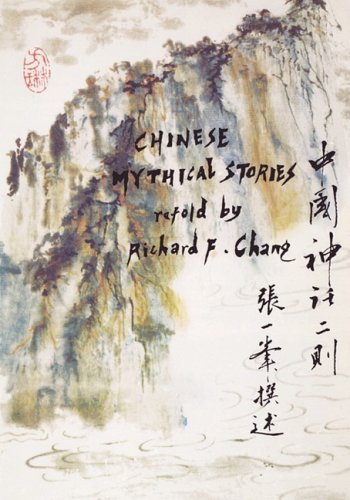 CHINESE
MYTHICAL STORIES
retold by
Richard F. Chang
中國神話二則
張一峯撰述